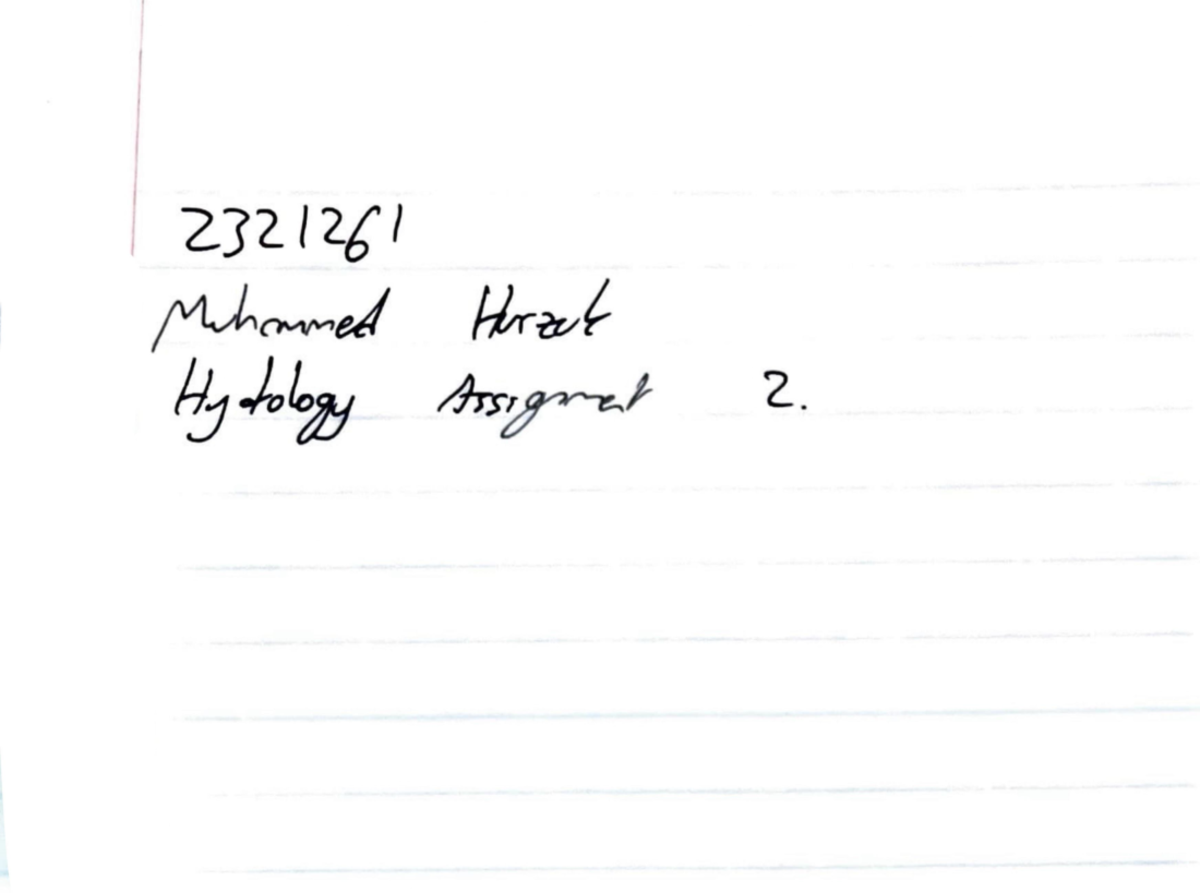 2321261
Muhammed
Hydrology Assignment 2.